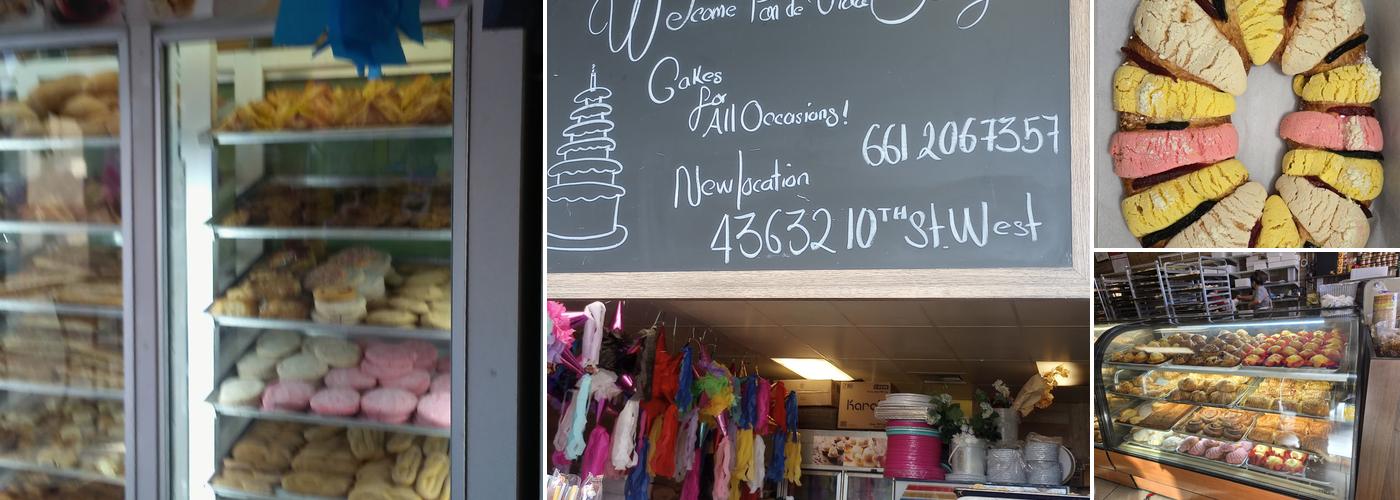 Welcome Pan de Vida
Cakes
for
All Occasions!
661 2067357
New location
43632 10TH St. West
Kar